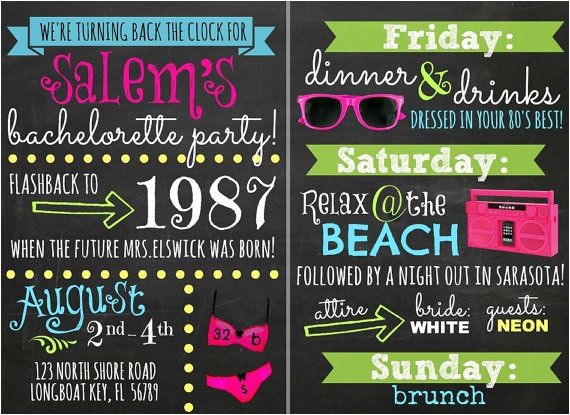 WE'RE TURNING BACK THE CLOCK FOR
SALEM'S
bachelorette party!
FLASHBACK TO
1987
WHEN THE FUTURE MRS.ELSWICK WAS BORN!
August
2nd-4th
123 NORTH SHORE ROAD
LONGBOAT KEY, FL 56789
32 b
s
Friday:
dinner & drinks
DRESSED IN YOUR 80'S BEST!
Saturday:
RELAX @ the
BEACH
FOLLOWED BY A NIGHT OUT IN SARASOTA!
attire bride: guests:
WHITE NEON
Sunday:
brunch